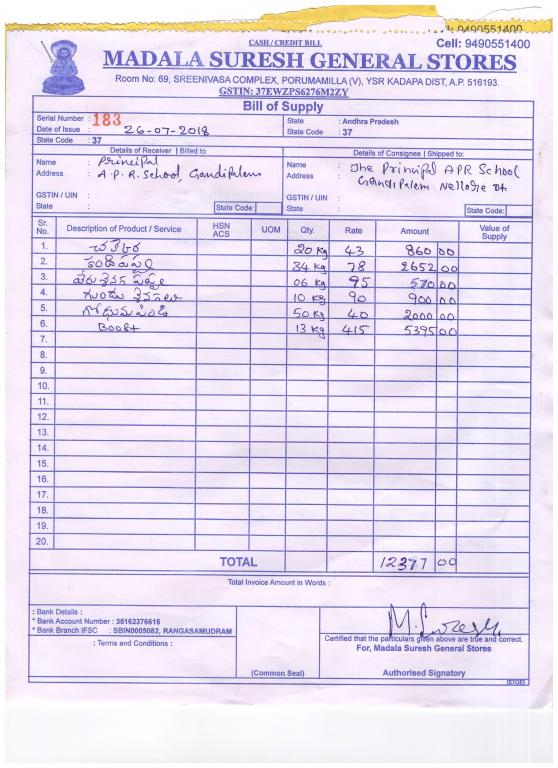 CASH / CREDIT BILL
Cell: 9490551400
MADALA SURESH GENERAL STORES
Room No: 69, SREENIVASA COMPLEX, PORUMAMILLA (V), YSR KADAPA DIST, A.P. 516193.
GSTIN: 37EWZPS6276M2ZY
Bill of Supply
Serial Number : 183
Date of Issue : 26-07-2018
State Code : 37
State : Andhra Pradesh
State Code : 37
Details of Receiver | Billed to
Name : Principal
Address : A.P.R. School, Gandipalem
GSTIN / UIN :
State : State Code:
Details of Consignee | Shipped to:
Name : The Principal APR School
Address : Gandipalem Nellore Dt
GSTIN / UIN :
State : State Code:
Sr. No. Description of Product / Service HSN ACS UOM Qty. Rate Amount Value of Supply
1. 20 Kg 43 860 00
2. కందిపప్పు 34 Kg 78 2652 00
3. 06 Kg 95 570 00
4. గుండు శెనగలు 10 Kg 90 900 00
5. గోధుమపిండి 50 Kg 40 2000 00
6. 13 Kg 415 5395 00
7.
8.
9.
10.
11.
12.
13.
14.
15.
16.
17.
18.
19.
20.
TOTAL 12377 00
Total Invoice Amount in Words :
: Bank Details :
* Bank Account Number : 35162376616
* Bank Branch IFSC : SBIN0005082, RANGASAMUDRAM
: Terms and Conditions :
(Common Seal)
M. Suresh
Certified that the particulars given above are true and correct.
For, Madala Suresh General Stores
Authorised Signatory